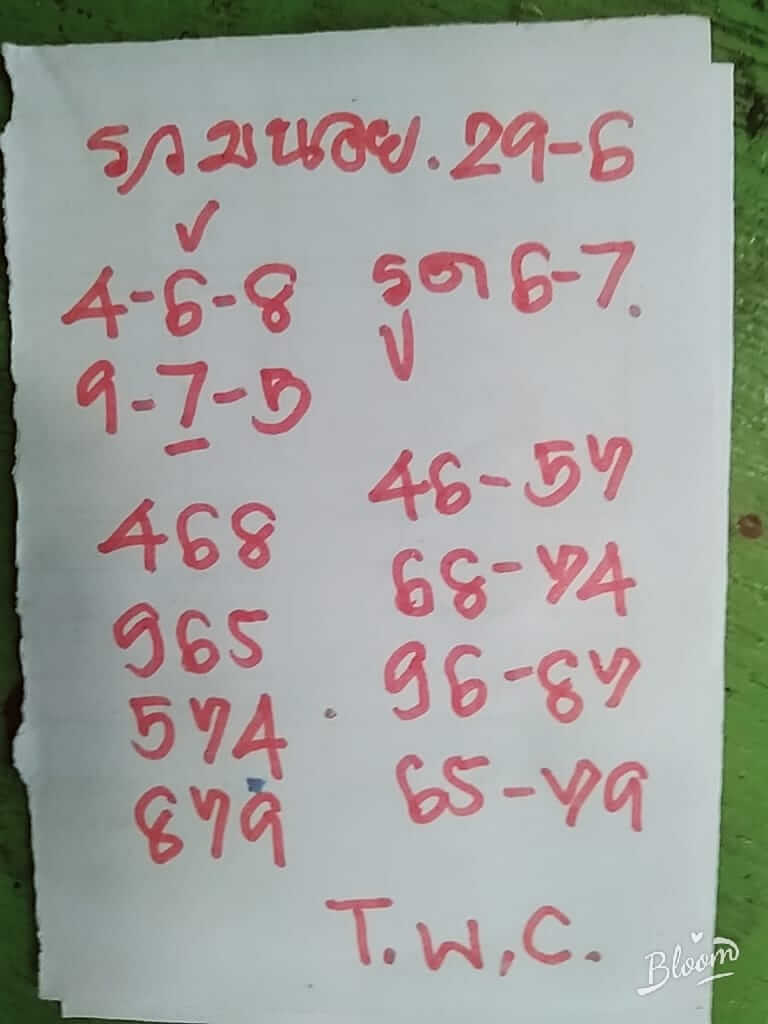 29-6
4-6-8 รูด 6-7.
9-7-5
468 46-57
965 68-74
574 96-87
879 65-79
T.W.C.
Bloom